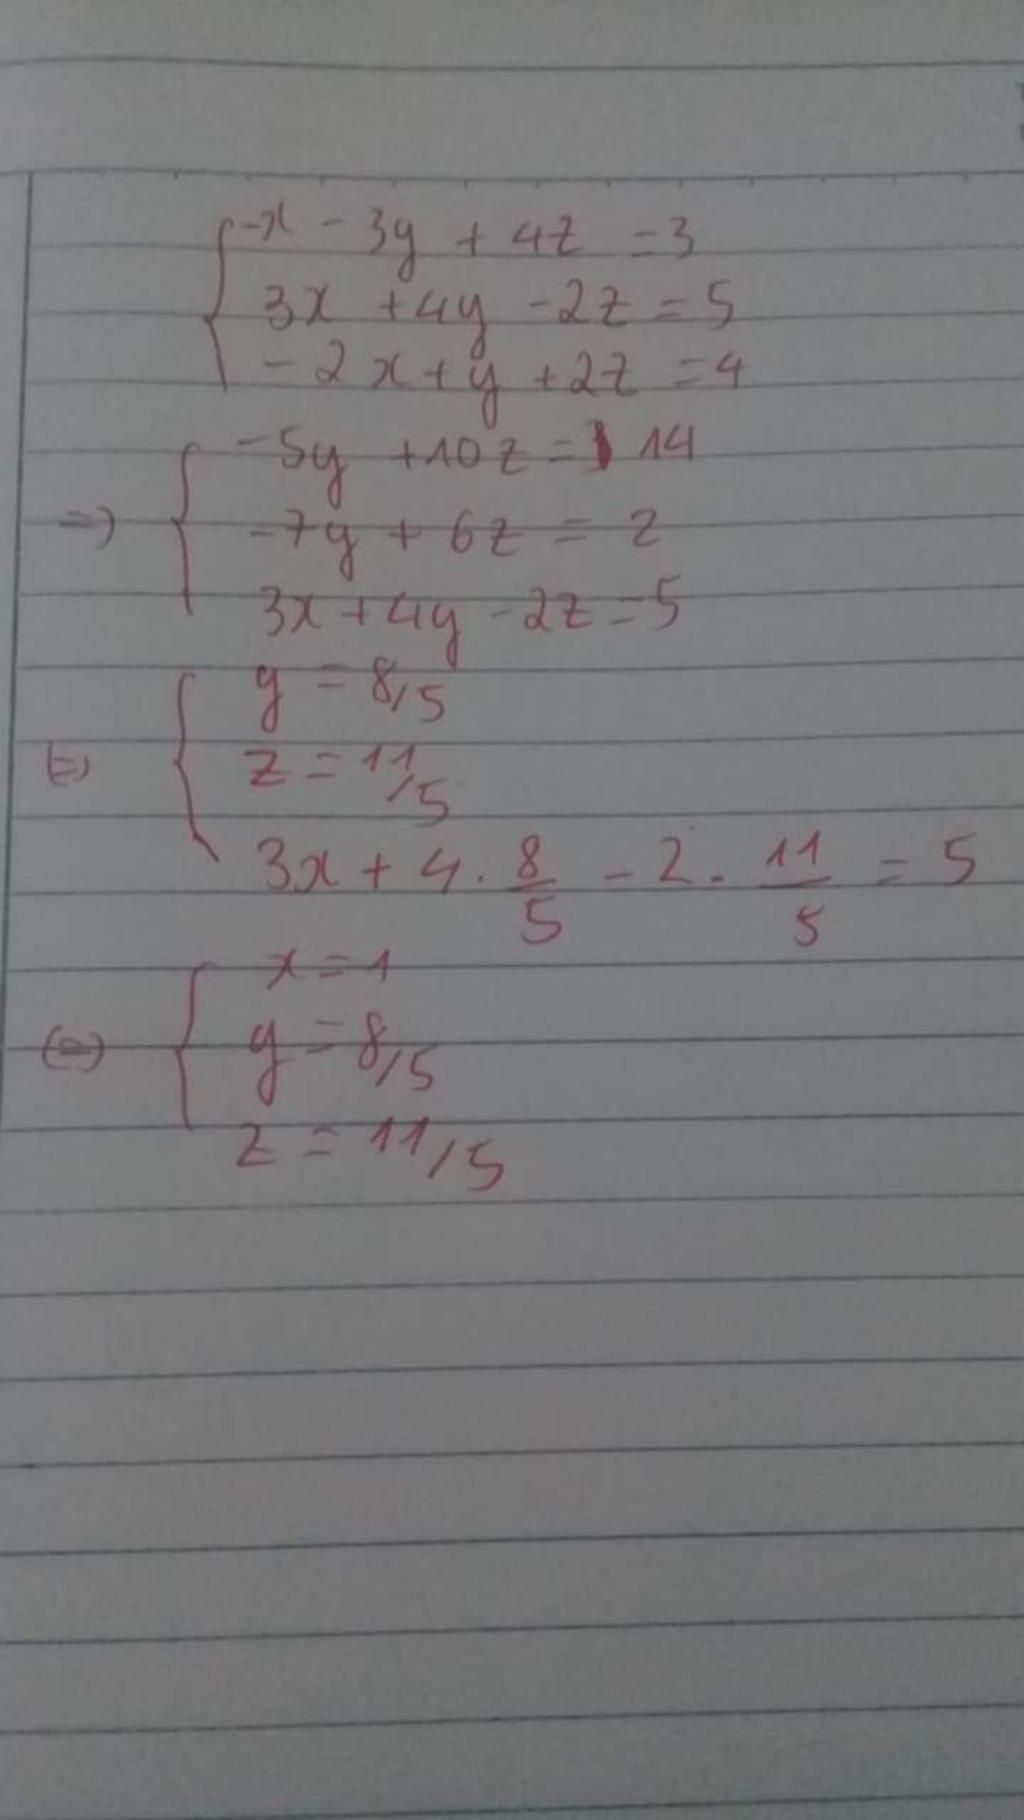 -x - 3y + 4z = 3
3x + 4y - 2z = 5
- 2x + y + 2z = 4
=> -5y + 10z = 14
-7y + 6z = 2
3x + 4y - 2z = 5
(=) y = 8/5
z = 11/5
3x + 4 . 8/5 - 2 . 11/5 = 5
(=) x = 1
y = 8/5
z = 11/5